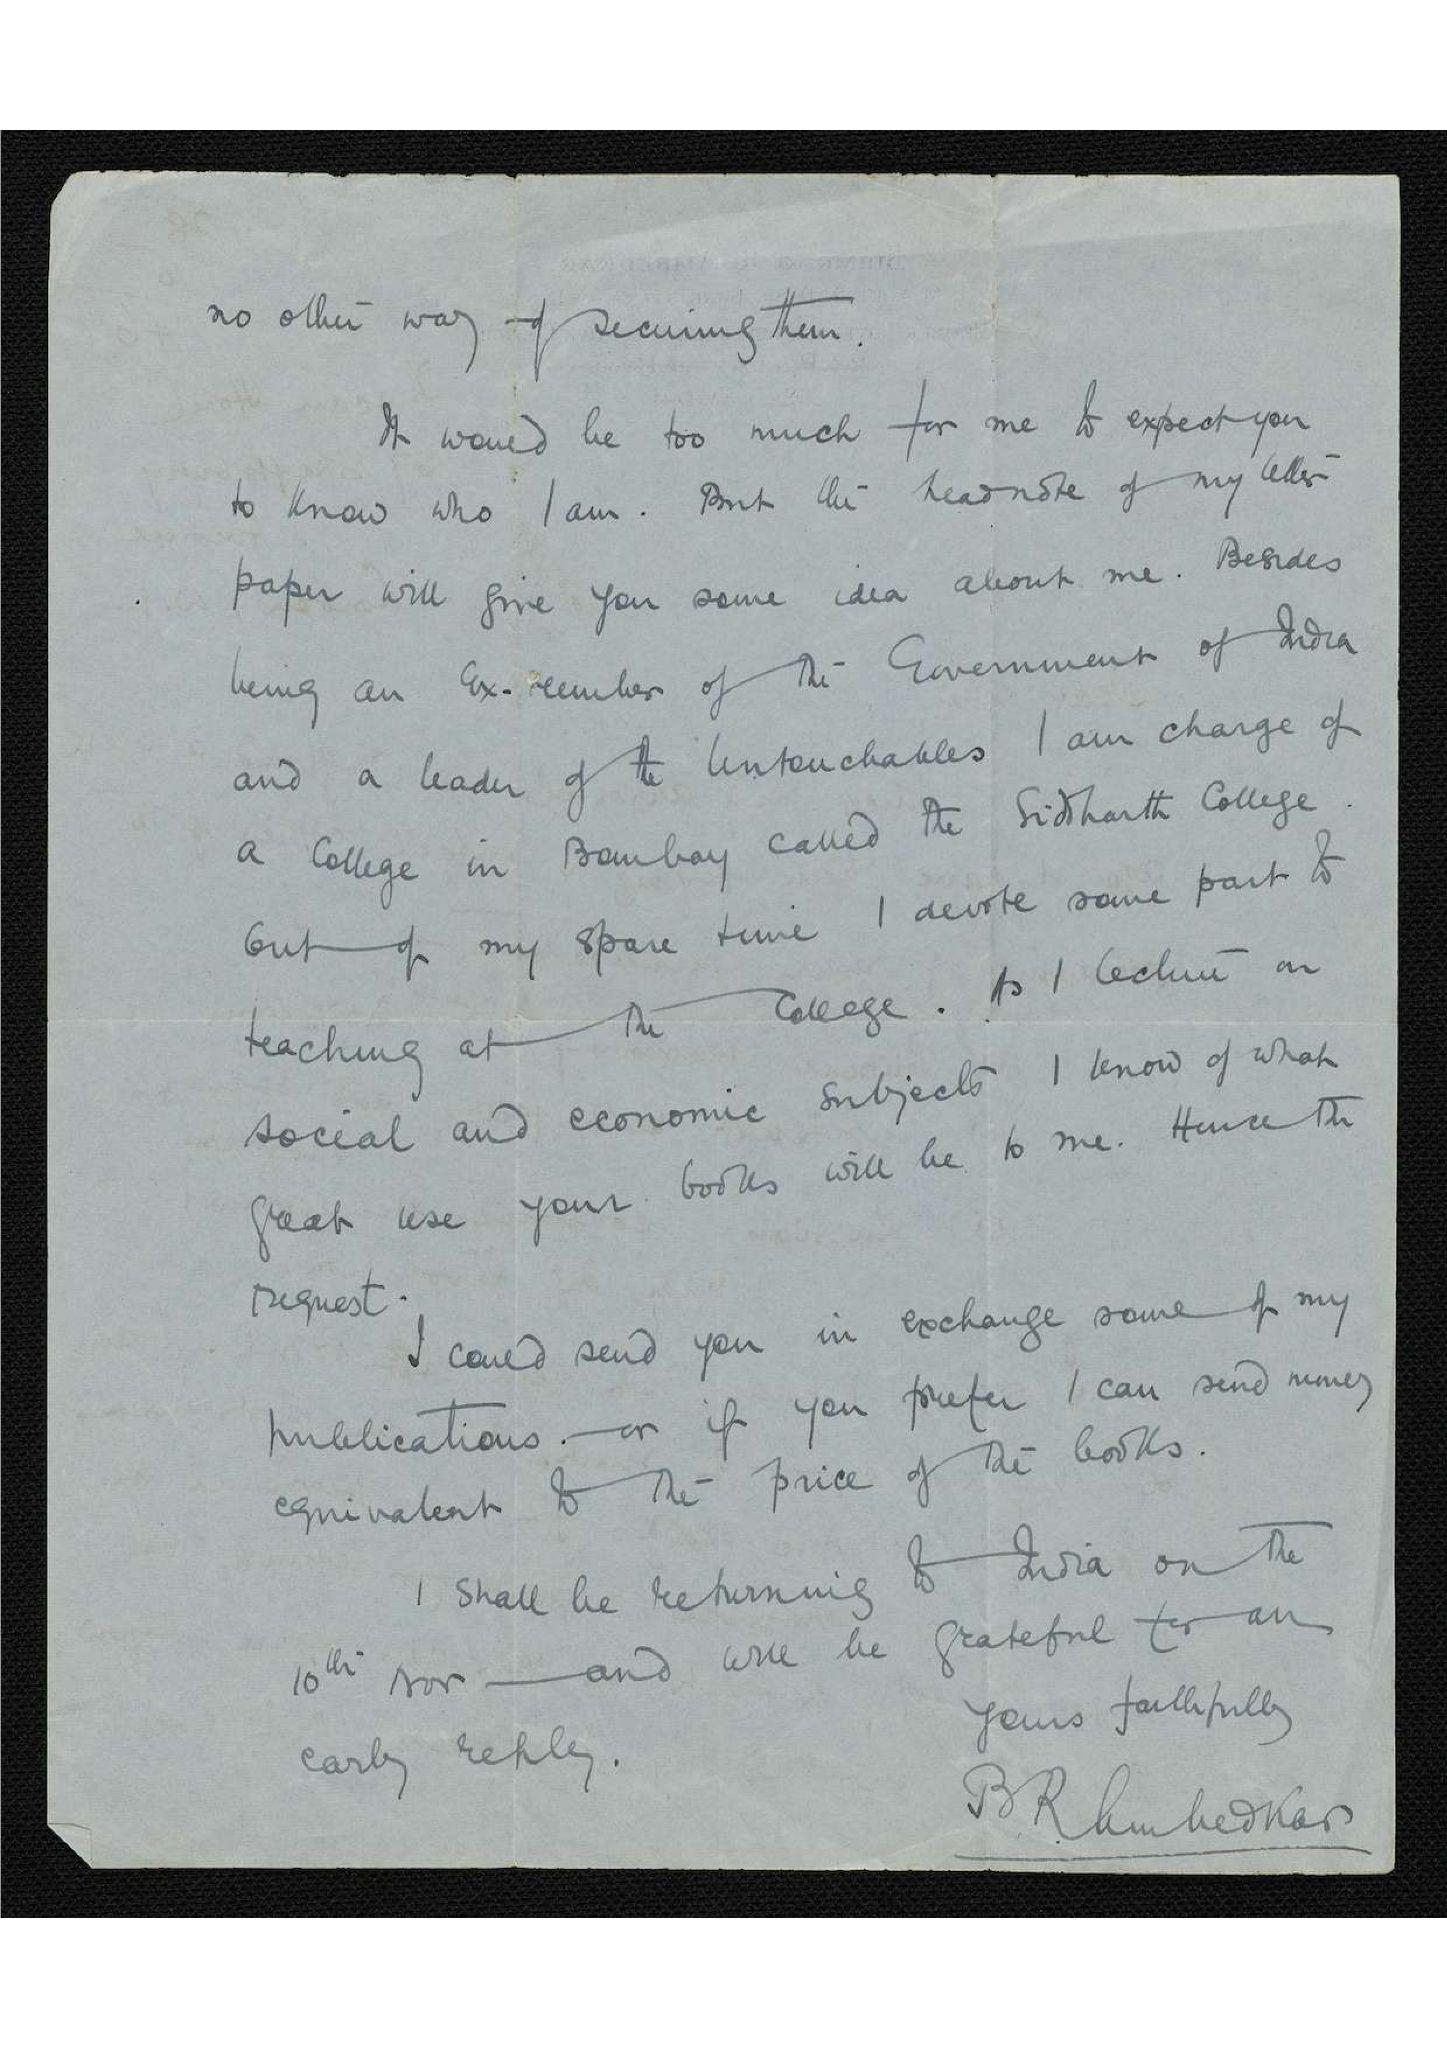 no other way of securing them.
It would be too much for me to expect you
to know who I am. But the headnote of my letter
paper will give you some idea about me. Besides
being an Ex-member of the Government of India
and a leader of the Untouchables I am charge of
a College in Bombay called the Siddharth College.
Out of my spare time I devote some part to
teaching at the College. As I lecture on
social and economic subjects I know of what
great use your books will be to me. Hence the
request.
I could send you in exchange some of my
publications. or if you prefer I can send money
equivalent to the price of the books.
I shall be returning to India on the
10th Nov — and will be grateful for an
early reply.
Yours faithfully
B R Ambedkar